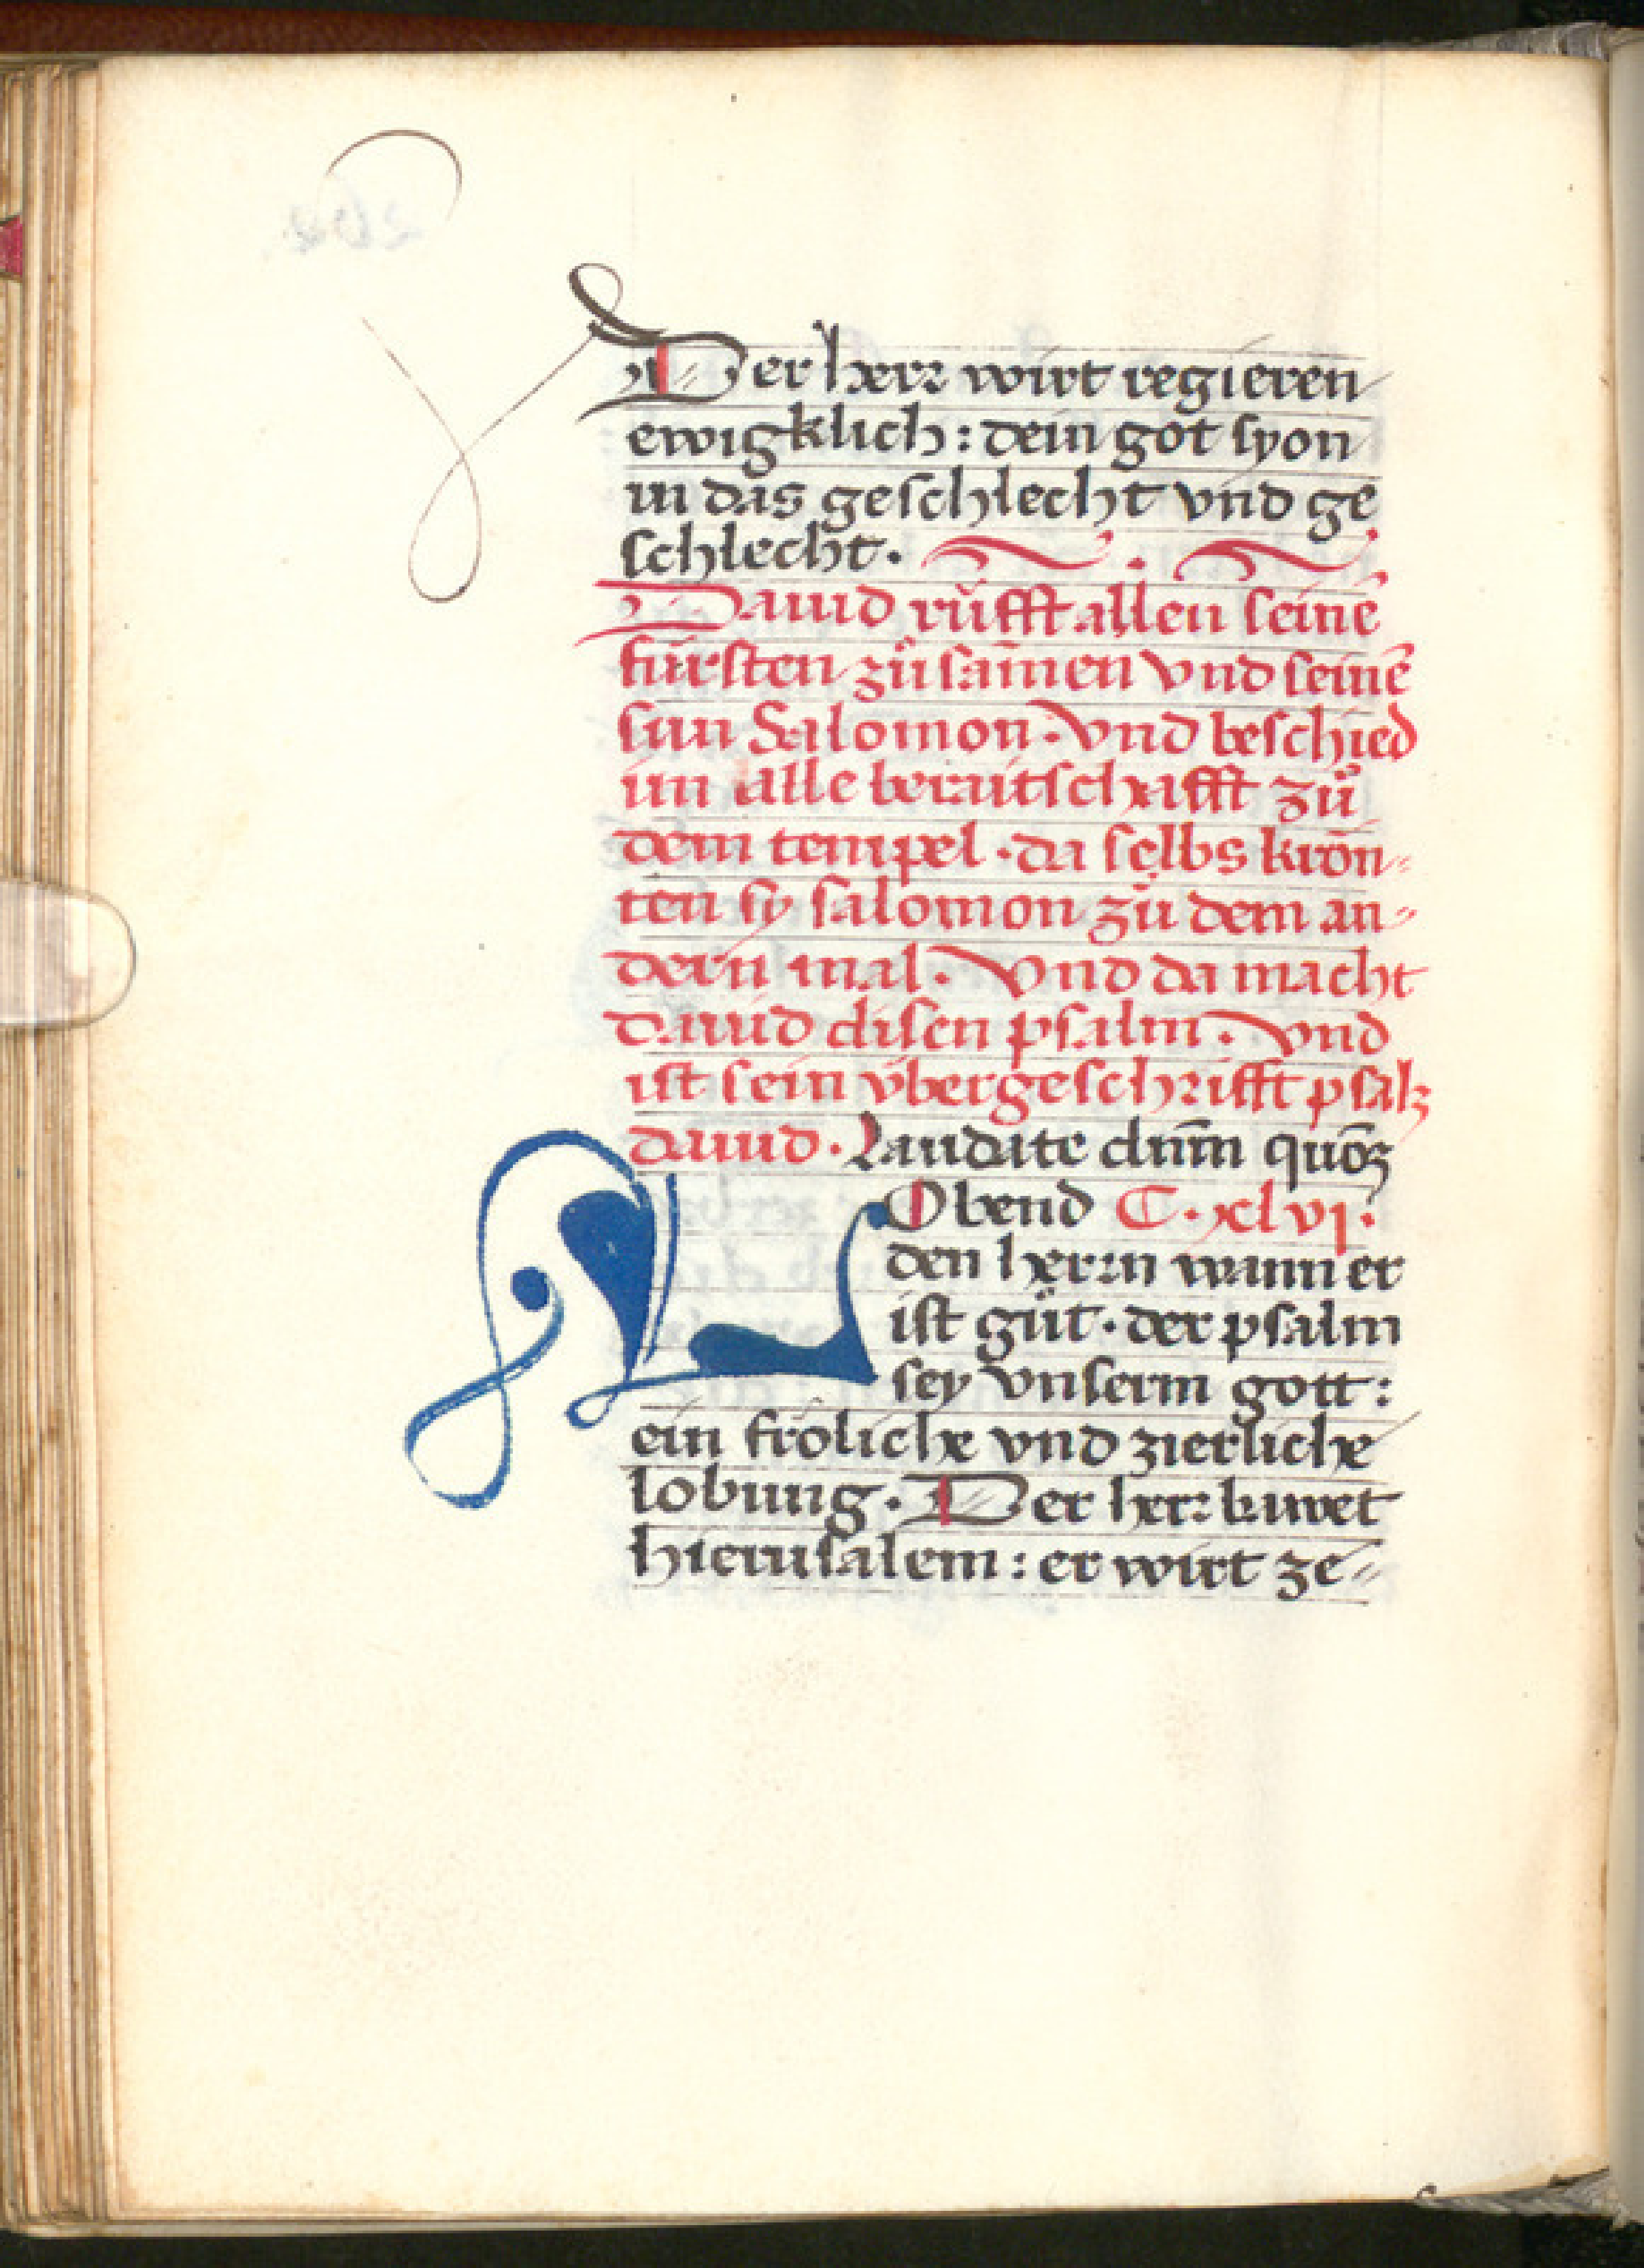 Der herr wirt regieren
ewigklich : dein got syon
in das geschlecht vnd ge
schlecht .
Dauid rüfft allen seinē
fürsten zůsāmen vnd seinē
sun Salomon . vnd beschied
im alle beraitschafft zů
dem tempel . da selbs krön⸗
ten sy salomon zů dem an⸗
dern mal . Vnd da macht
dauid disen psalm . Vnd
ist sein v̈bergeschrifft psalꝫ
dauid . Laudate dn̄m quōꝫ
LObend C . xlvj .
den herrn wann er
ist güt . der psalm
sey vnserm gott :
ein fröliche vnd zierliche
lobung . Der herr buwet
hierusalem : er wirt ze⸗